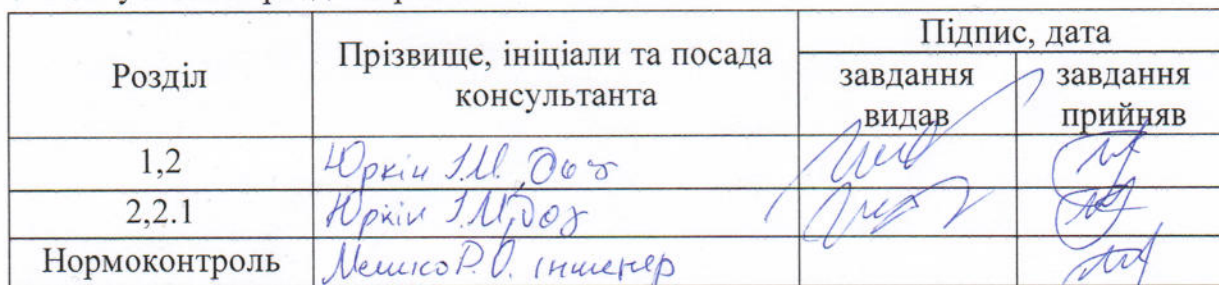 Розділ
Прізвище, ініціали та посада
консультанта
Підпис, дата
завдання
видав
завдання
прийняв
1,2
Юркін І.М. доц
2,2.1
Юркін І.М, доц
Нормоконтроль
Мешко Р.О. інженер